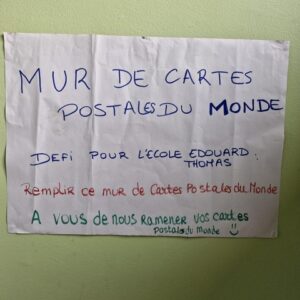 MUR DE CARTES
POSTALES DU MONDE
DEFI POUR L'ECOLE EDOUARD
THOMAS :
Remplir ce mur de Cartes Postales du Monde
A vous de nous Ramener vos cartes
postales du monde